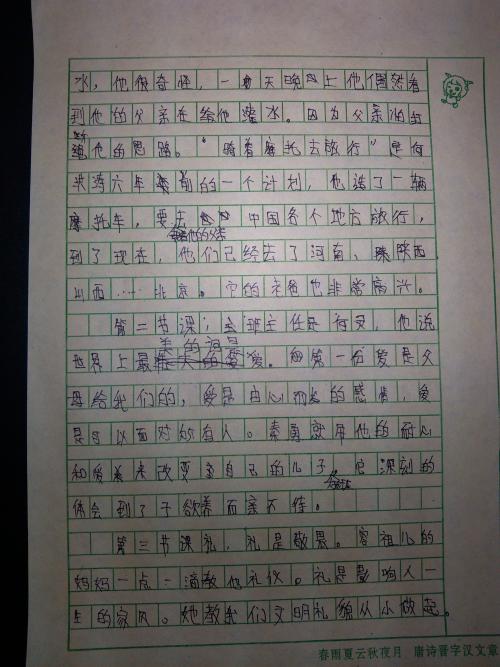 水，他很奇怪，一天晚上他偶然看
到他的父亲在给他灌水。因为父亲的
他的思路。"骑着摩托去旅行"是何
六年前的一个计划，他造了一辆
摩托车，要去中国各个地方旅行，
他的父亲
到了现在，他们已经去了河南、陕西
山西……北京。它的爸爸也非常高兴。
第二节课；主班主任是何炅，他说
美的词是
世界上最爱。第一份爱是父
母给我们的，爱是由心而发的感情，爱
是可以面对所有人。就用他的耐心
和爱来改变自己的儿子，深刻的
体会到了子欲养而亲不待。
第三节课礼，礼是敬畏。容祖儿的
妈妈一点一滴教他礼仪。礼是影响人一
生的家风。她教我们文明礼貌从小做起。
春雨夏云秋夜月 唐诗晋字汉文章